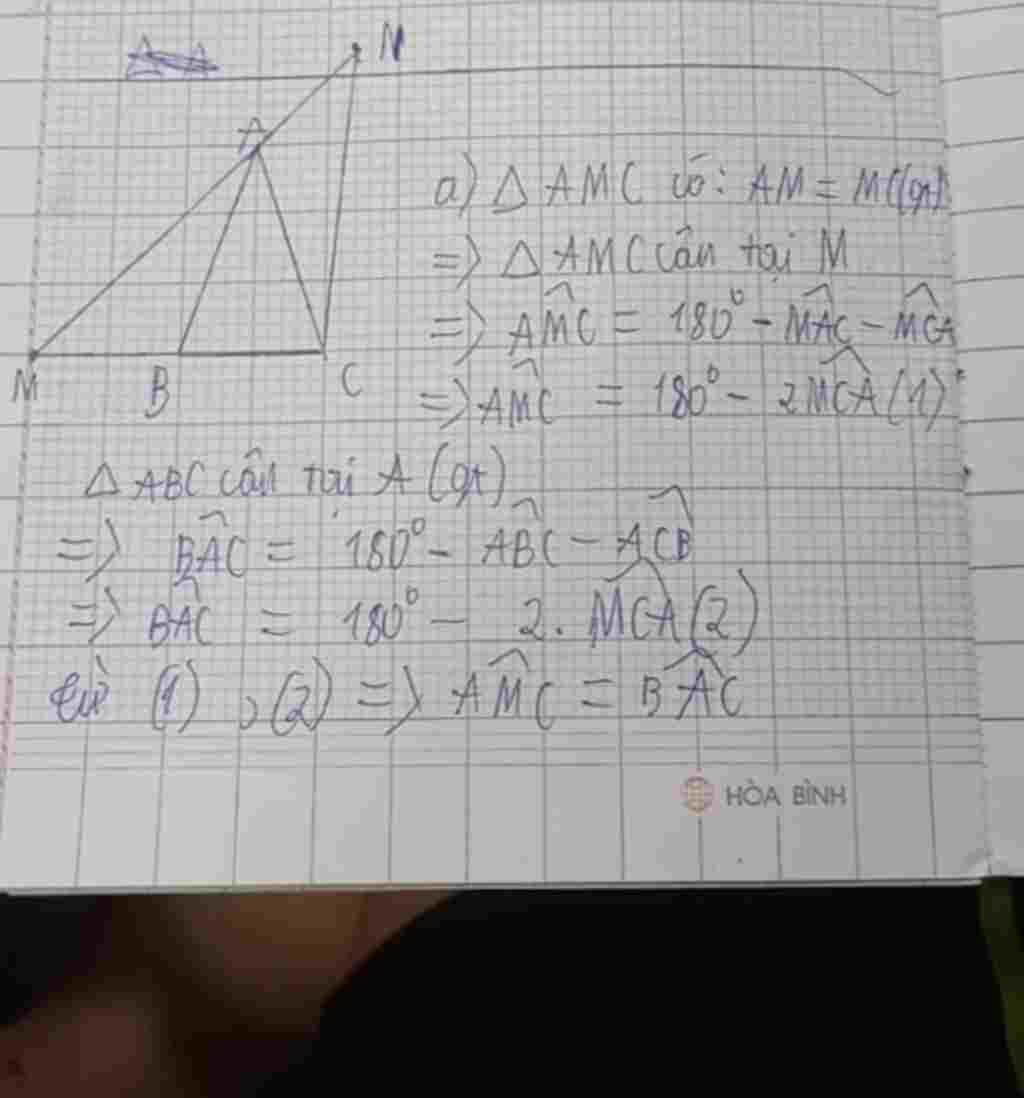 N
A
M
B
C
a) Δ AMC có: AM = MC (gt)
=> Δ AMC cân tại M
=> \widehat{AMC} = 180° - \widehat{MAC} - \widehat{MCA}
=> \widehat{AMC} = 180° - 2\widehat{MCA} (1)
Δ ABC cân tại A (gt)
=> \widehat{BAC} = 180° - \widehat{ABC} - \widehat{ACB}
=> \widehat{BAC} = 180° - 2. \widehat{MCA} (2)
từ (1), (2) => \widehat{AMC} = \widehat{BAC}
HÒA BÌNH